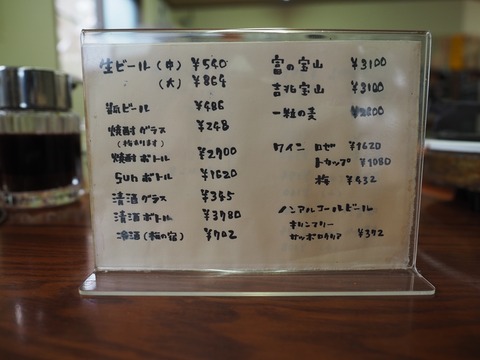 生ビール (中) ¥540
(大) ¥864
瓶ビール ¥486
焼酎グラス ¥248
(梅あります)
焼酎ボトル ¥2700
Sunボトル ¥1620
清酒グラス ¥345
清酒ボトル ¥3780
冷酒(梅の宿) ¥702
富の宝山 ¥3100
吉兆宝山 ¥3100
一粒の麦 ¥2800
ワイン ロゼ ¥1620
トカップ ¥1080
梅 ¥432
ノンアルコールビール
キリンフリー
サッポロ ¥372